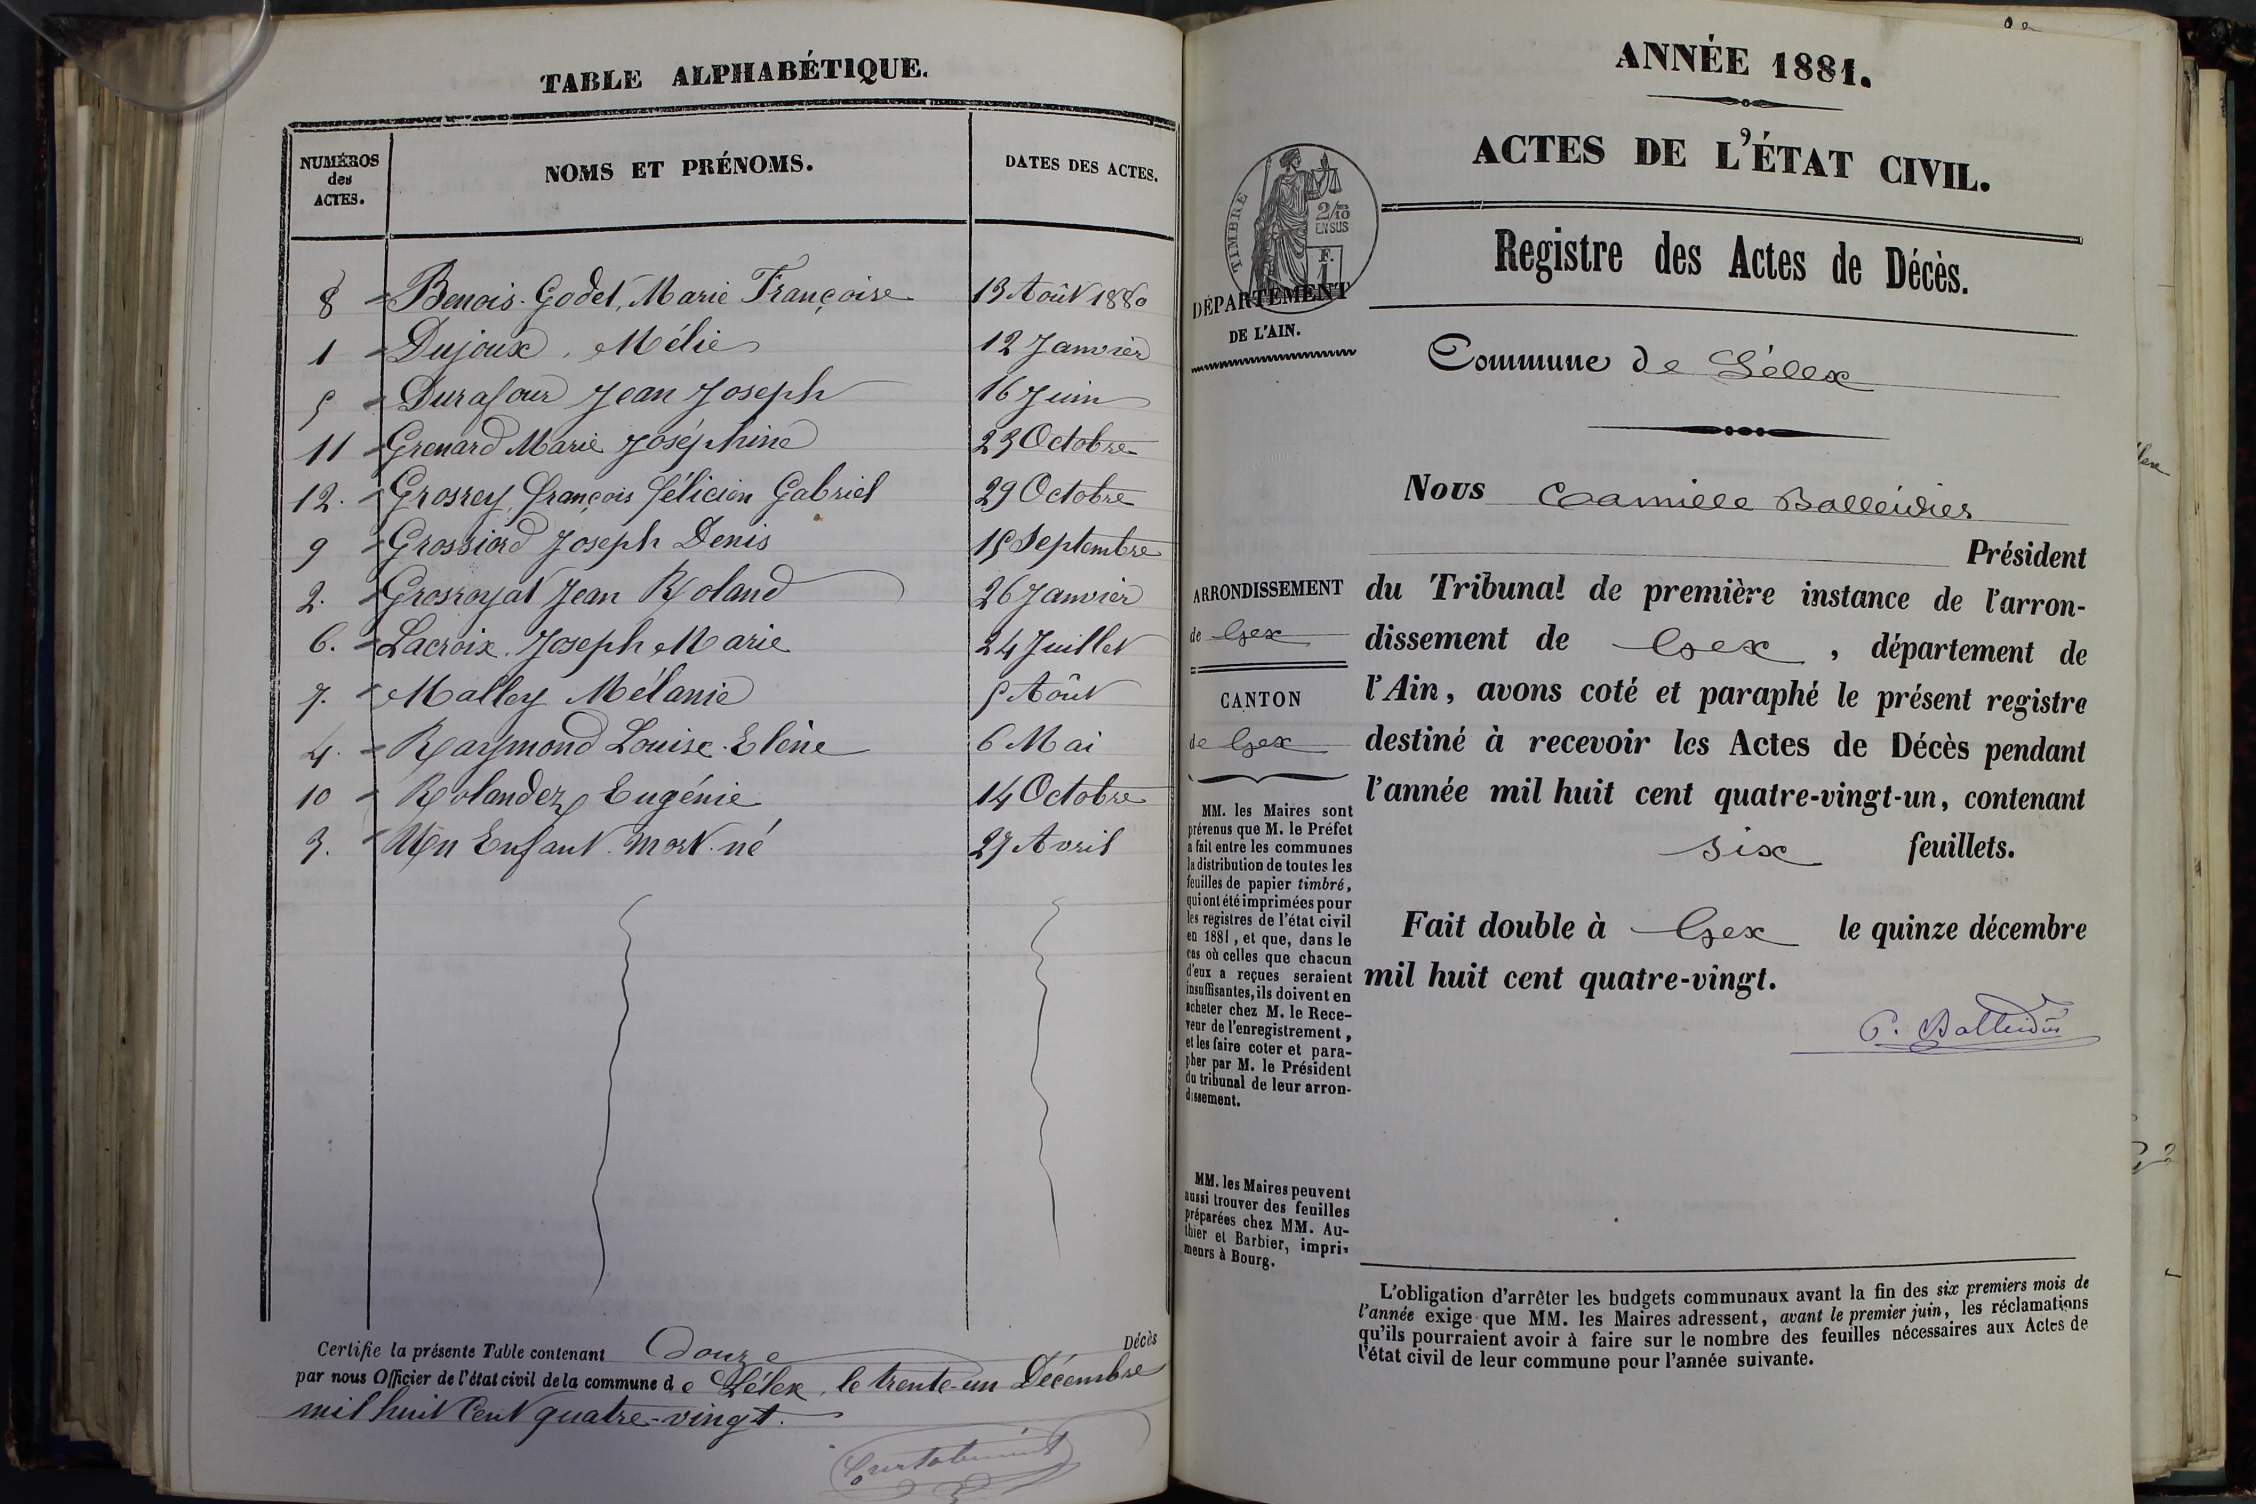 TABLE ALPHABÉTIQUE.
NUMÉROS
des
ACTES.
NOMS ET PRÉNOMS.
DATES DES ACTES.
8 Benois-Godet, Marie Françoise 13 Août 1880
1 Dujoux, Mélie 12 Janvier
5 Durafour Jean Joseph 16 Juin
11 Grenard Marie Joséphine 23 Octobre
12. Grosrey, François Félicien Gabriel 29 Octobre
9 Grossiord Joseph Denis 15 Septembre
2. Grosroyat Jean Roland 26 Janvier
6. Lacroix, Joseph Marie 24 Juillet
7. Malley Mélanie 5 Août
4. Raymond Louise-Elène 6 Mai
10 Rolandez Eugénie 14 Octobre
3. Un Enfant mort-né 27 Avril
Certifie la présente Table contenant Douze Décès
par nous Officier de l'état civil de la commune de Lélex, le trente-un Décembre
mil huit Cent quatre-vingt.
ANNÉE 1881.
ACTES DE L'ÉTAT CIVIL.
TIMBRE
2/10
EN SUS
F.
1
DÉPARTEMENT
DE L'AIN.
Registre des Actes de Décès.
Commune de Lélex
Nous Camille Balleidier
Président
ARRONDISSEMENT
de Gex
CANTON
de Gex
du Tribunal de première instance de l'arron-
dissement de Gex, département de
l'Ain, avons coté et paraphé le présent registre
destiné à recevoir les Actes de Décès pendant
l'année mil huit cent quatre-vingt-un, contenant
six feuillets.
Fait double à Gex le quinze décembre
mil huit cent quatre-vingt.
C. Balleidier
MM. les Maires sont
prévenus que M. le Préfet
a fait entre les communes
la distribution de toutes les
feuilles de papier timbré,
qui ont été imprimées pour
les registres de l'état civil
en 1881, et que, dans le
cas où celles que chacun
d'eux a reçues seraient
insuffisantes, ils doivent en
acheter chez M. le Rece-
veur de l'enregistrement,
et les faire coter et para-
pher par M. le Président
du tribunal de leur arron-
dissement.
MM. les Maires peuvent
aussi trouver des feuilles
préparées chez MM. Au-
thier et Barbier, impri-
meurs à Bourg.
L'obligation d'arrêter les budgets communaux avant la fin des six premiers mois de
l'année exige que MM. les Maires adressent, avant le premier juin, les réclamations
qu'ils pourraient avoir à faire sur le nombre des feuilles nécessaires aux Actes de
l'état civil de leur commune pour l'année suivante.